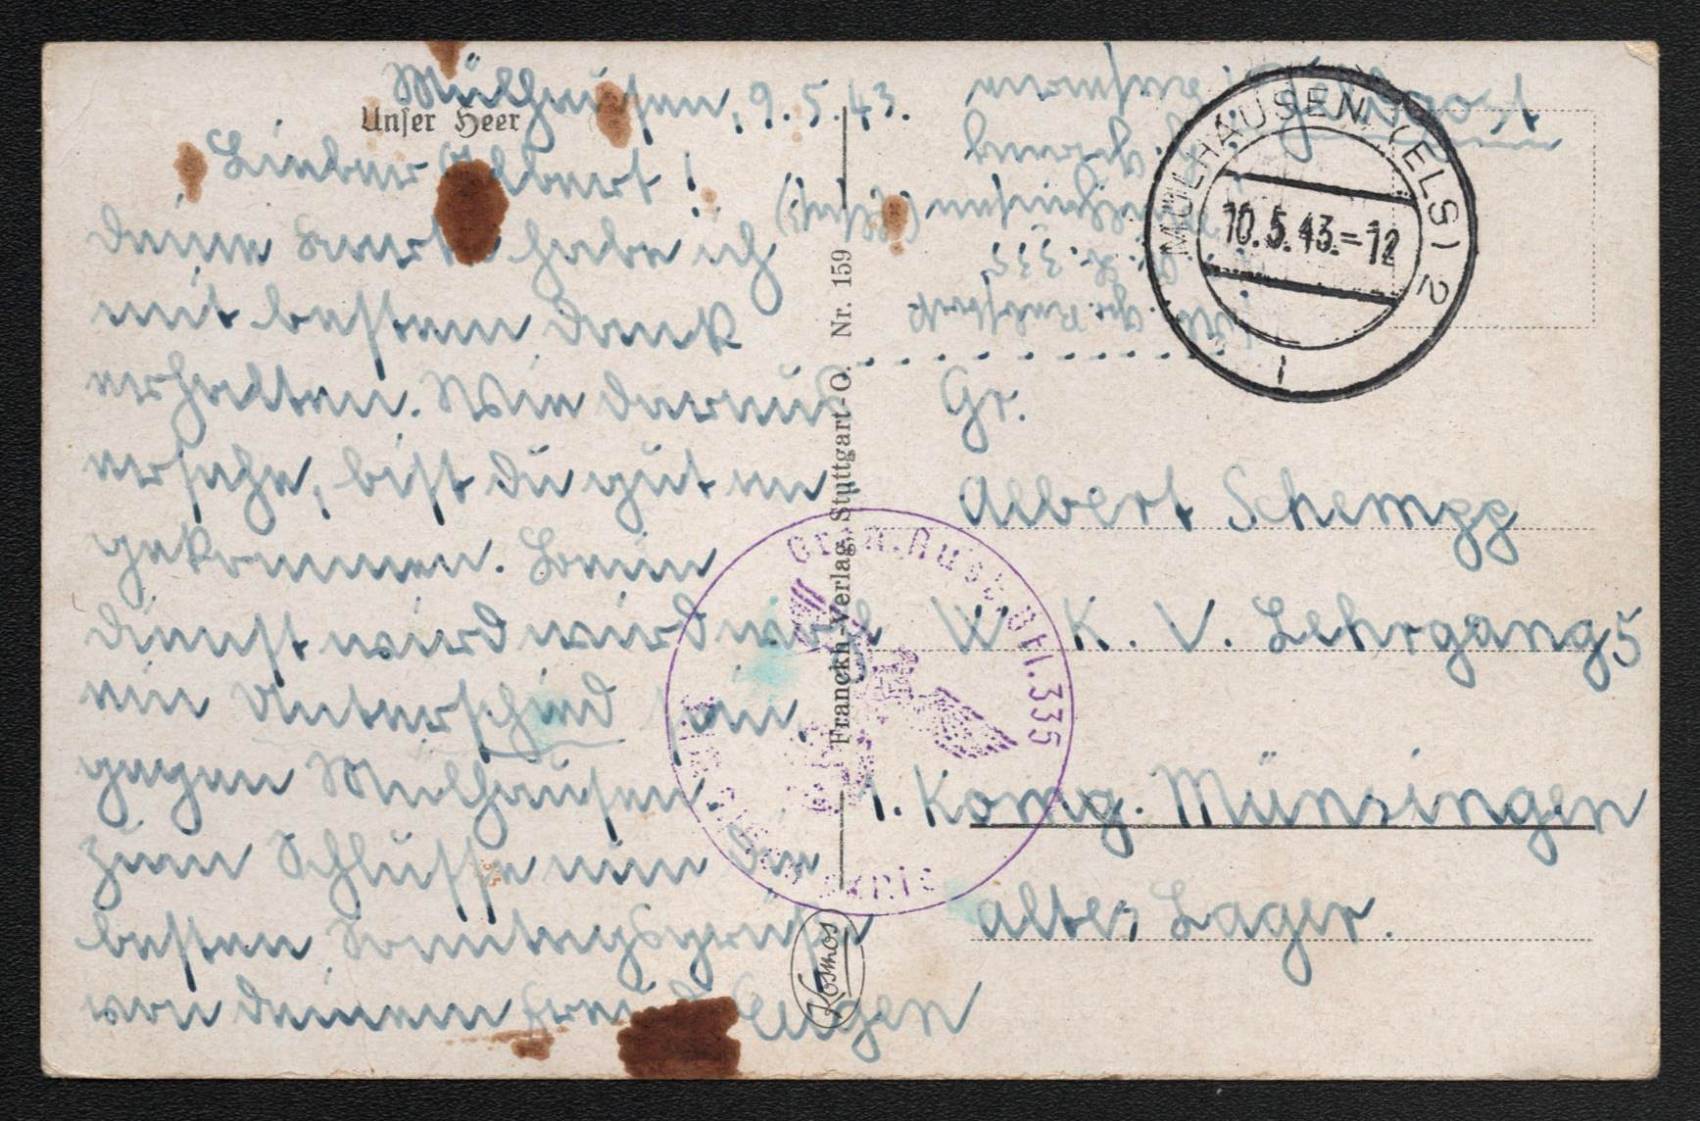 Mülhausen, 9.5.43.
Unser Heer
Lieber Albert!
deine Karte habe ich
mit bestem Dank
erhalten. Wie daraus
ersehe, bist du gut an
gekommen. Beim
Dienst wird wird wohl
ein Unterschied sein
gegen Mülhausen.
Zum Schlusse nun die
besten Sonntagsgrüße
von deinem Freund Eugen
Franckh-Verlag, Stuttgart-O. Nr. 159
Kosmos
Feldpost
Mülhausen (Elsaß)
335
MÜLHAUSEN (ELS) 2
10.5.43.-12
Gr.
Albert Schempp
W. K. V. Lehrgang 5
1. Komp. Münsingen
altes Lager.
Gren. Ausb. Btl. 335